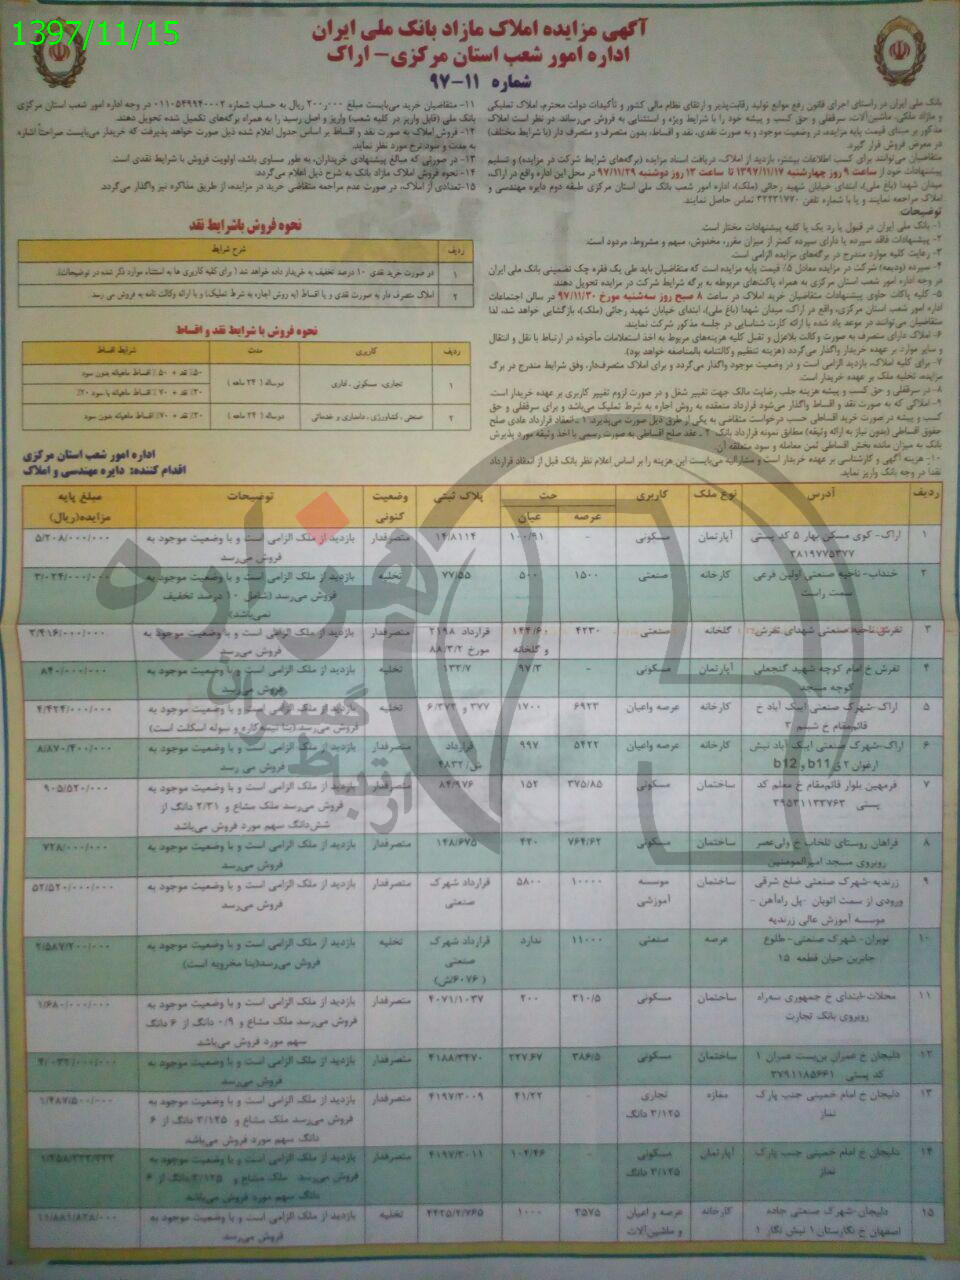 1397/11/15
آگهی مزایده املاک مازاد بانک ملی ایران
اداره امور شعب استان مرکزی- اراک
شماره ۱۱-۹۷
بانک ملی ایران در راستای اجرای قانون رفع موانع تولید رقابت‌پذیر و ارتقای نظام مالی کشور و تأکیدات دولت محترم، املاک تملیکی
و مازاد ملکی، ماشین‌آلات، سرقفلی و حق کسب و پیشه خود را با شرایط ویژه و استثنایی به فروش می‌رساند. در نظر است املاک
مذکور بر مبنای قیمت پایه مزایده، در وضعیت موجود و به صورت نقدی، نقد و اقساط، بدون متصرف و متصرف دار (با شرایط مختلف)
در معرض فروش قرار گیرد.
متقاضیان می‌توانند برای کسب اطلاعات بیشتر، بازدید از املاک، دریافت اسناد مزایده (برگه‌های شرایط شرکت در مزایده) و تسلیم
پیشنهادات خود از ساعت ۹ روز چهارشنبه ۱۳۹۷/۱۱/۱۷ تا ساعت ۱۳ روز دوشنبه ۹۷/۱۱/۲۹ در محل این اداره واقع در اراک،
میدان شهدا (باغ ملی)، ابتدای خیابان شهید رجائی (ملک)، اداره امور شعب بانک ملی استان مرکزی طبقه دوم دایره مهندسی و
املاک مراجعه نمایند و یا با شماره تلفن ۳۲۲۳۱۷۷۰ تماس حاصل نمایند.
توضیحات:
۱- بانک ملی ایران در قبول یا رد یک یا کلیه پیشنهادات مختار است.
۲- پیشنهادات فاقد سپرده یا دارای سپرده کمتر از میزان مقرر، مخدوش، مبهم و مشروط، مردود است.
۳- رعایت کلیه موارد مندرج در برگه‌های مزایده الزامی است.
۴- سپرده (ودیعه) شرکت در مزایده معادل ۵٪ قیمت پایه مزایده است که متقاضیان باید طی یک فقره چک تضمینی بانک ملی ایران
در وجه اداره امور شعب استان مرکزی به همراه پاکت‌های مربوطه به برگه شرایط شرکت در مزایده تحویل دهند.
۵- کلیه پاکات حاوی پیشنهادات متقاضیان خرید املاک در ساعت ۸ صبح روز سه‌شنبه مورخ ۹۷/۱۱/۳۰ در سالن اجتماعات
اداره امور شعب استان مرکزی، واقع در اراک، میدان شهدا (باغ ملی)، ابتدای خیابان شهید رجائی (ملک)، بازگشایی خواهد شد، لذا
متقاضیان می‌توانند در موعد یاد شده با ارائه کارت شناسایی در جلسه مذکور شرکت نمایند.
۶- املاک دارای متصرف به صورت وکالت بلاعزل و تقبل کلیه هزینه‌های مربوط به اخذ استعلامات مأخوذه در ارتباط با نقل و انتقال
و سایر موارد بر عهده خریدار واگذار می‌گردد (هزینه تنظیم وکالتنامه بالمناصفه خواهد بود).
۷- برای کلیه املاک، بازدید الزامی است و در وضعیت موجود واگذار می‌گردد و برای املاک متصرف‌دار، وفق شرایط مندرج در برگ
مزایده، تخلیه ملک بر عهده خریدار است.
۸- در سرقفلی و حق کسب و پیشه هزینه جلب رضایت مالک جهت تغییر شغل و در صورت لزوم تغییر کاربری بر عهده خریدار است.
۹- املاکی که به صورت نقد و اقساط واگذار می‌شود قرارداد منعقده به روش اجاره به شرط تملیک می‌باشد و برای سرقفلی و حق
کسب و پیشه در صورت خرید اقساطی حسب درخواست متقاضی به یکی از طرق ذیل صورت می‌پذیرد: ۱- انعقاد قرارداد عادی صلح
حقوق اقساطی (بدون نیاز به ارائه وثیقه) مطابق نمونه قرارداد بانک. ۲- عقد صلح اقساطی به صورت رسمی با اخذ وثیقه مورد پذیرش
بانک به میزان مانده بخش اقساطی ثمن معامله و سود متعلقه آن.
۱۰- هزینه آگهی و کارشناسی بر عهده خریدار است و مشارالیه می‌بایست این هزینه را بر اساس اعلام نظر بانک قبل از انعقاد قرارداد
نقداً در وجه بانک واریز نماید.
۱۱- متقاضیان خرید می‌بایست مبلغ ۲۰۰٫۰۰۰ ریال به حساب شماره ۰۱۱۰۵۴۹۹۴۰۰۰۲ در وجه اداره امور شعب استان مرکزی
بانک ملی (قابل واریز در کلیه شعب) واریز و اصل رسید را به همراه برگه‌های تکمیل شده تحویل دهند.
۱۲- فروش املاک به صورت نقد و اقساط بر اساس جدول اعلام شده ذیل صورت خواهد پذیرفت که خریدار می‌بایست صراحتاً اشاره
به مدت و سود/نرخ مورد نظر نماید.
۱۳- در صورتی که مبالغ پیشنهادی خریداران، به طور مساوی باشد، اولویت فروش با شرایط نقدی است.
۱۴- نحوه فروش املاک مازاد بانک به شرح ذیل اعلام می‌گردد:
۱۵-تعدادی از املاک، در صورت عدم مراجعه متقاضی خرید در مزایده، از طریق مذاکره نیز واگذار می‌گردد.
نحوه فروش باشرایط نقد
ردیف شرح شرایط
۱ در صورت خرید نقدی ۱۰ درصد تخفیف به خریدار داده خواهد شد ( برای کلیه کاربری ها به استثناء موارد ذکر شده در توضیحات).
۲ املاک متصرف دار به صورت نقدی و یا اقساط (به روش اجاره به شرط تملیک) و با ارائه وکالت نامه به فروش می رسد
نحوه فروش با شرایط نقد و اقساط
ردیف کاربری مدت شرایط اقساط
۱ تجاری، مسکونی ، اداری دوساله ( ۲۴ ماهه ) ۵۰٪ نقد + ۵۰٪ اقساط ماهیانه بدون سود
۳۰٪ نقد + ۷۰٪ اقساط ماهیانه با سود ۲۰٪
۲ صنعتی ، کشاورزی ، دامداری و خدماتی دوساله ( ۲۴ ماهه ) ۳۰٪ نقد + ۷۰٪ اقساط ماهیانه بدون سود
اداره امور شعب استان مرکزی
اقدام کننده: دایره مهندسی و املاک
ردیف آدرس نوع ملک کاربری عرصه اعیان پلاک ثبتی وضعیت کنونی توضیحات مبلغ پایه مزایده(ریال)
۱ اراک- کوی مسکن بهار ۵ کد پستی ۳۸۱۹۷۷۵۳۷۷ آپارتمان مسکونی - ۱۰۰/۹۱ ۱۴/۸۱۱۴ متصرفدار بازدید از ملک الزامی است و با وضعیت موجود به فروش می‌رسد ۵/۲۰۸/۰۰۰/۰۰۰
۲ خنداب- ناحیه صنعتی اولین فرعی سمت راست کارخانه صنعتی ۱۵۰۰ ۵۰۰ ۷۷/۵۵ تخلیه بازدید از ملک الزامی است و با وضعیت موجود به فروش می‌رسد (شامل ۱۰ درصد تخفیف نمی‌باشد) ۳/۰۲۴/۰۰۰/۰۰۰
۳ تفرش-ناحیه صنعتی شهدای تفرش گلخانه صنعتی ۴۲۳۰ ۱۴۴/۶۰ و گلخانه قرارداد ۲۱۹۸ مورخ ۸۸/۳/۲ متصرفدار بازدید از ملک الزامی است و با وضعیت موجود به فروش می‌رسد ۲/۴۱۶/۰۰۰/۰۰۰
۴ تفرش خ امام کوچه شهید گنجعلی کوچه مسجد آپارتمان مسکونی - ۹۷/۳ ۱۳۳/۷ تخلیه بازدید از ملک الزامی است و با وضعیت موجود به فروش می‌رسد ۸۴۰/۰۰۰/۰۰۰
۵ اراک-شهرک صنعتی ایبک آباد خ قائم‌مقام خ شبنم ۳ کارخانه عرصه واعیان ۶۹۲۳ ۱۷۰۰ ۳۷۷ و ۶/۳۷۲ تخلیه بازدید از ملک الزامی است و با وضعیت موجود به فروش می‌رسد (بنا نیمه‌کاره و سوله اسکلت است) ۴/۴۲۴/۰۰۰/۰۰۰
۶ اراک-شهرک صنعتی ایبک آباد نبش ارغوان ۲ ق b11 و b12 کارخانه عرصه واعیان ۵۴۲۲ ۹۹۷ قرارداد ش/۴۸۳۲ متصرفدار بازدید از ملک الزامی است و با وضعیت موجود به فروش می رسد ۸/۸۷۰/۴۰۰/۰۰۰
۷ فرمهین بلوار قائم‌مقام خ معلم کد پستی ۳۹۵۳۱۱۳۳۷۶۳ ساختمان مسکونی ۳۷۵/۸۵ ۱۵۲ ۸۴/۹۷۶ متصرفدار بازدید از ملک الزامی است و با وضعیت موجود به فروش می‌رسد ملک مشاع و ۲/۳۱ دانگ از شش‌دانگ سهم مورد فروش می‌باشد ۹۰۵/۵۲۰/۰۰۰
۸ فراهان روستای تلخاب خ ولی‌عصر روبروی مسجد امیرالمومنین ساختمان مسکونی ۷۶۴/۶۲ ۴۳۰ ۱۴۸/۶۷۵ متصرفدار بازدید از ملک الزامی است و با وضعیت موجود به فروش می‌رسد ۷۲۸/۰۰۰/۰۰۰
۹ زرندیه-شهرک صنعتی ضلع شرقی ورودی از سمت اتوبان -پل راه‌آهن - موسسه آموزش عالی زرندیه ساختمان موسسه آموزشی ۱۰۰۰۰ ۵۸۰۰ قرارداد شهرک صنعتی متصرفدار بازدید از ملک الزامی است و با وضعیت موجود به فروش می‌رسد ۵۲/۵۲۰/۰۰۰/۰۰۰
۱۰ نوبران- شهرک صنعتی- طلوع جابربن حیان قطعه ۱۵ عرصه صنعتی ۱۱۰۰۰ ندارد قرارداد شهرک صنعتی (۶۰۷۶/ش) تخلیه بازدید از ملک الزامی است و با وضعیت موجود به فروش می‌رسد(بنا مخروبه است) ۲/۵۸۷/۲۰۰/۰۰۰
۱۱ محلات-ابتدای خ جمهوری سه‌راه روبروی بانک تجارت ساختمان مسکونی ۳۱۰/۵ ۲۰۰ ۴۰۷۱/۱۰۳۷ متصرفدار بازدید از ملک الزامی است و با وضعیت موجود به فروش می‌رسد ملک مشاع و ۰/۹ دانگ از ۶ دانگ سهم مورد فروش می‌باشد ۱/۶۸۰/۰۰۰/۰۰۰
۱۲ دلیجان خ عمران بن‌بست عمران ۱ کد پستی ۳۷۹۱۱۸۵۶۶۱ ساختمان مسکونی ۳۸۶/۵ ۲۲۷/۶۷ ۴۱۸۸/۳۴۷۰ متصرفدار بازدید از ملک الزامی است و با وضعیت موجود به فروش می‌رسد ۴/۰۳۲/۰۰۰/۰۰۰
۱۳ دلیجان خ امام خمینی جنب پارک نماز مغازه تجاری ۳/۱۲۵ دانگ - ۴۱/۲۲ ۴۱۹۷/۳۰۰۹ متصرفدار بازدید از ملک الزامی است و با وضعیت موجود به فروش می‌رسد ملک مشاع و ۳/۱۲۵ دانگ از ۶ دانگ سهم مورد فروش می‌باشد ۱/۴۸۷/۵۰۰/۰۰۰
۱۴ دلیجان خ امام خمینی جنب پارک نماز آپارتمان مسکونی ۳/۱۲۵ دانگ - ۱۰۴/۴۶ ۴۱۹۷/۳۰۱۱ متصرفدار بازدید از ملک الزامی است و با وضعیت موجود به فروش می‌رسد ملک مشاع و ۳/۱۲۵ دانگ از ۶ دانگ سهم مورد فروش می‌باشد ۱/۴۵۸/۳۳۳/۳۳۳
۱۵ دلیجان-شهرک صنعتی جاده اصفهان خ نگارستان۱ نبش نگار ۱ کارخانه عرصه و اعیان و ماشین‌آلات ۳۵۷۵ ۱۰۰۰ ۴۴۳۵/۲/۷۶۵ تخلیه بازدید از ملک الزامی است و با وضعیت موجود به فروش می‌رسد ۱۱/۸۸۱/۸۲۸/۰۰۰
هزاره
ارتباط